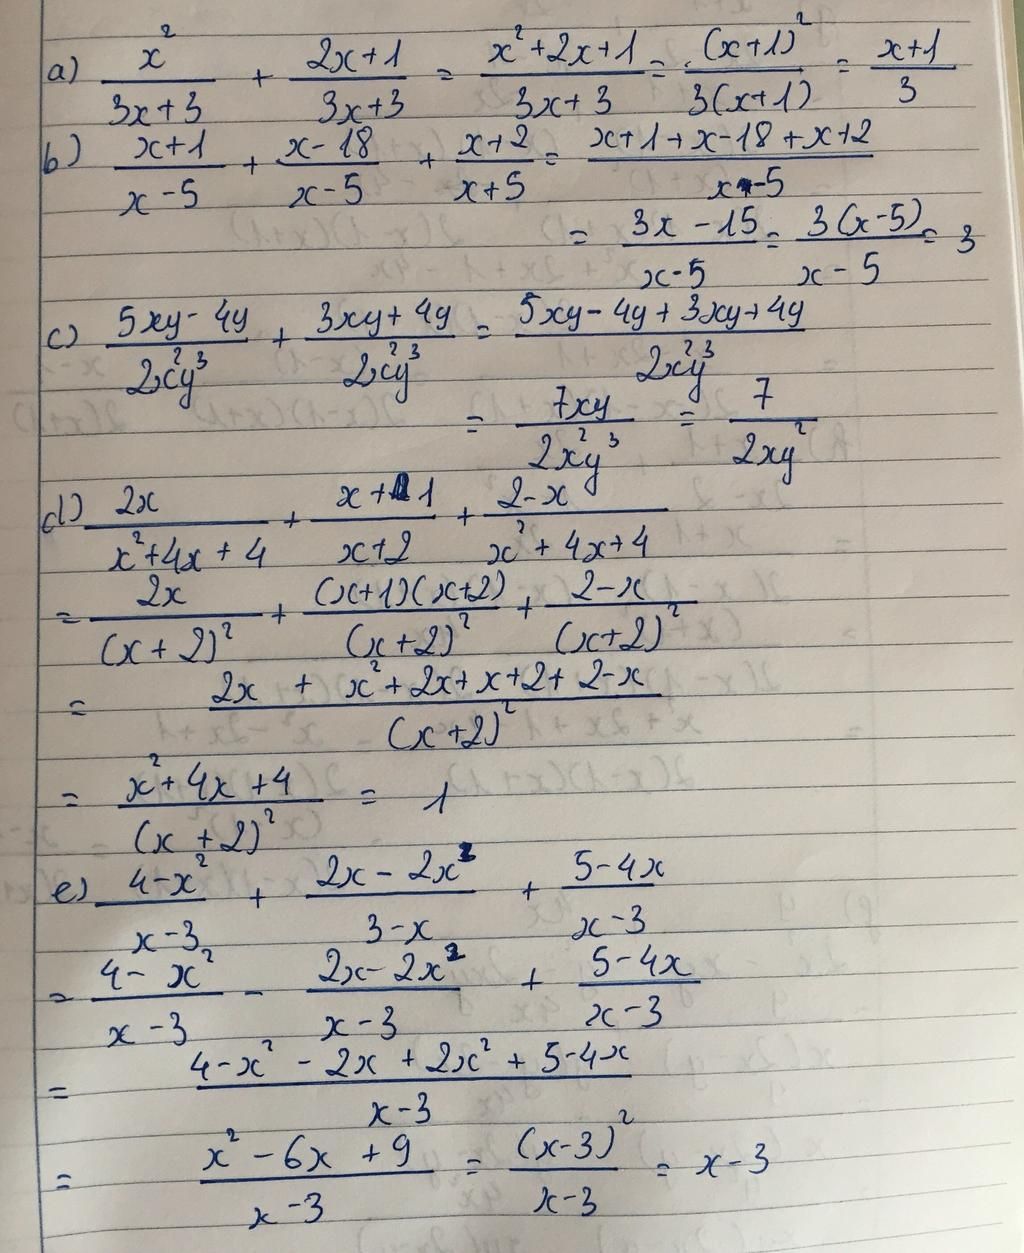 a) x²/(3x+3) + (2x+1)/(3x+3) = (x²+2x+1)/(3x+3) = (x+1)²/3(x+1) = (x+1)/3
b) (x+1)/(x-5) + (x-18)/(x-5) + (x+2)/(x+5) = (x+1+x-18+x+2)/(x-5)
= (3x-15)/(x-5) = 3(x-5)/(x-5) = 3
c) (5xy-4y)/(2x²y³) + (3xy+4y)/(2x²y³) = (5xy-4y+3xy+4y)/(2x²y³)
= 7xy/(2x²y³) = 7/(2xy²)
d) 2x/(x²+4x+4) + (x+1)/(x+2) + (2-x)/(x²+4x+4)
= 2x/(x+2)² + (x+1)(x+2)/(x+2)² + (2-x)/(x+2)²
= (2x + x²+2x+x+2+2-x)/(x+2)²
= (x²+4x+4)/(x+2)² = 1
e) (4-x²)/(x-3) + (2x-2x²)/(3-x) + (5-4x)/(x-3)
= (4-x²)/(x-3) - (2x-2x²)/(x-3) + (5-4x)/(x-3)
= (4-x²-2x+2x²+5-4x)/(x-3)
= (x²-6x+9)/(x-3) = (x-3)²/(x-3) = x-3